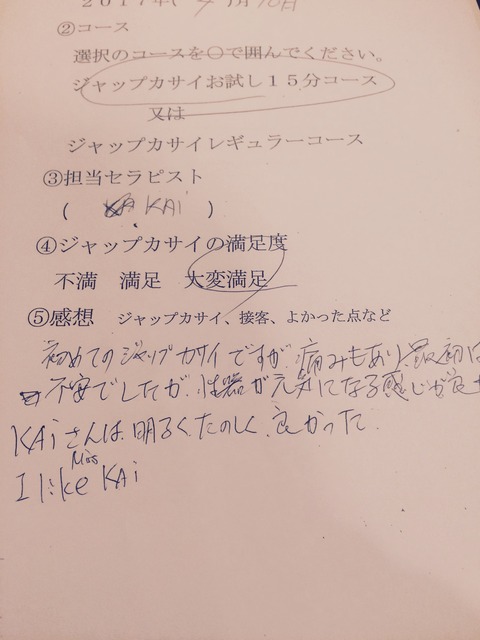 2017年(4)月10日
②コース
選択のコースを○で囲んでください。
ジャップカサイお試し15分コース
又は
ジャップカサイレギュラーコース
③担当セラピスト
( KAi )
④ジャップカサイの満足度
不満 満足 大変満足
⑤感想 ジャップカサイ、接客、よかった点など
初めてのジャップカサイですが 痛みもあり、最初は
不安でしたが、性器が元気になる感じが良
KAiさんは、明るくたのしく、良かった
I like Miss KAi